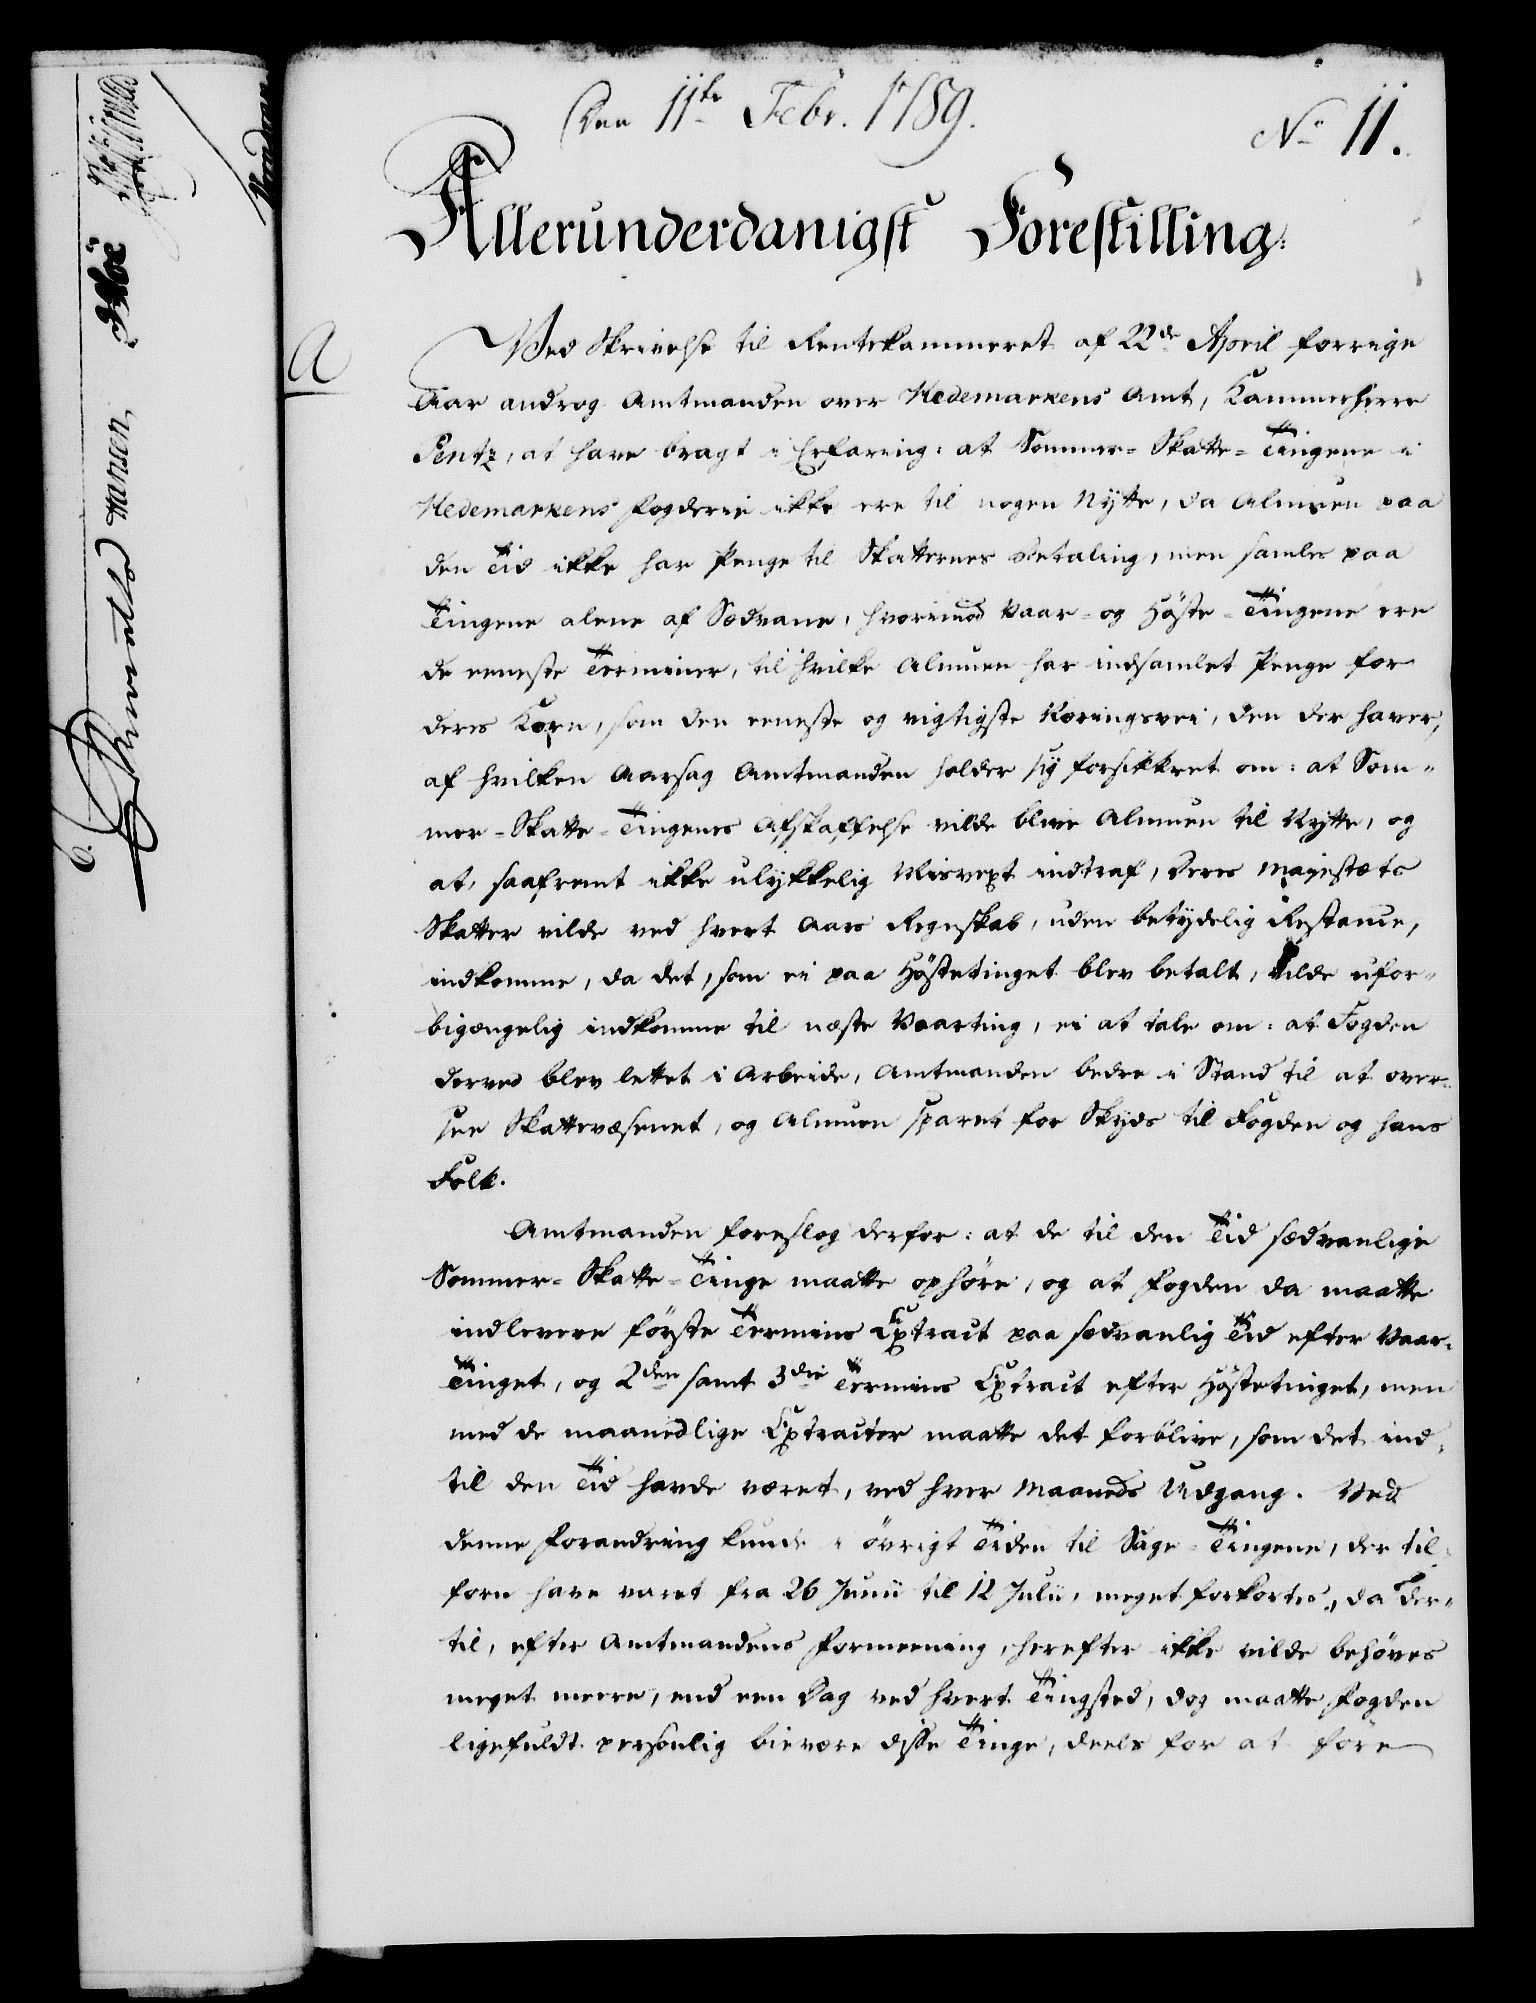 Den 11te Febr. 1789.
No 11.
Allerunderdanigst Forestilling.
A
Ved Skrivelse til Rentekammeret af 22de April forrige
Aar androg Amtmanden over Hedemarkens Amt, Kammerherre
Pentz, at have bragt i Erfaring: at Sommer-Skatte-Tingene i
Hedemarkens Fogderie ikke ere til nogen Nytte, da Almuen paa
den Tid ikke har Penge til Skatternes Betaling, men samles paa
Tingene alene af Sædvane, hvorimod Vaar- og Høste-Tingene ere
de eeneste Terminer, til hvilke Almuen har indsamlet Penge for
deres Korn, som den eeneste og vigtigste Næringsvei, den der haver,
af hvilken Aarsag Amtmanden holder sig forsikkret om: at Som-
mer-Skatte-Tingenes Afskaffelse vilde blive Almuen til Nytte, og
at, saafremt ikke ulykkelig Misvext indtraf, Deres Majestæts
Skatter vilde ved hvert Aars Regnskab, uden betydelig Restance,
indkomme, da det, som ei paa Høstetinget blev betalt, vilde ufor-
bigængelig indkomme til næste Vaarting, ei at tale om: at Fogden
derved blev lettet i Arbeide, Amtmanden bedre i Stand til at over-
see Skattevæsenet, og Almuen sparet for Skyds til Fogden og hans
Folk.
Amtmanden foreslog derfor: at de til den Tid sædvanlige
Sommer-Skatte-Tinge maatte ophøre, og at Fogden da maatte
indlevere første Termins Extract paa sædvanlig Tid efter Vaar-
Tinget, og 2den samt 3die Termins Extract efter Høstetinget, men
med de maanedlige Extracter maatte det forblive, som det ind-
til den Tid havde været, ved hver Maaneds Udgang. Ved
denne Forandring kunde i øvrigt Tiden til Sage-Tingene, der til-
forn have varet fra 26 Junii til 12 Julii, meget forkortes, da der-
til, efter Amtmandens Formeening, herefter ikke vilde behøves
meget meere, end een Dag ved hvert Tingsted, dog maatte Fogden
ligefuldt personlig bievære disse Tinge, deels for at føre